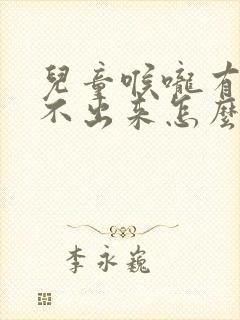 兒童喉嚨有
不出来怎麼
李永巍